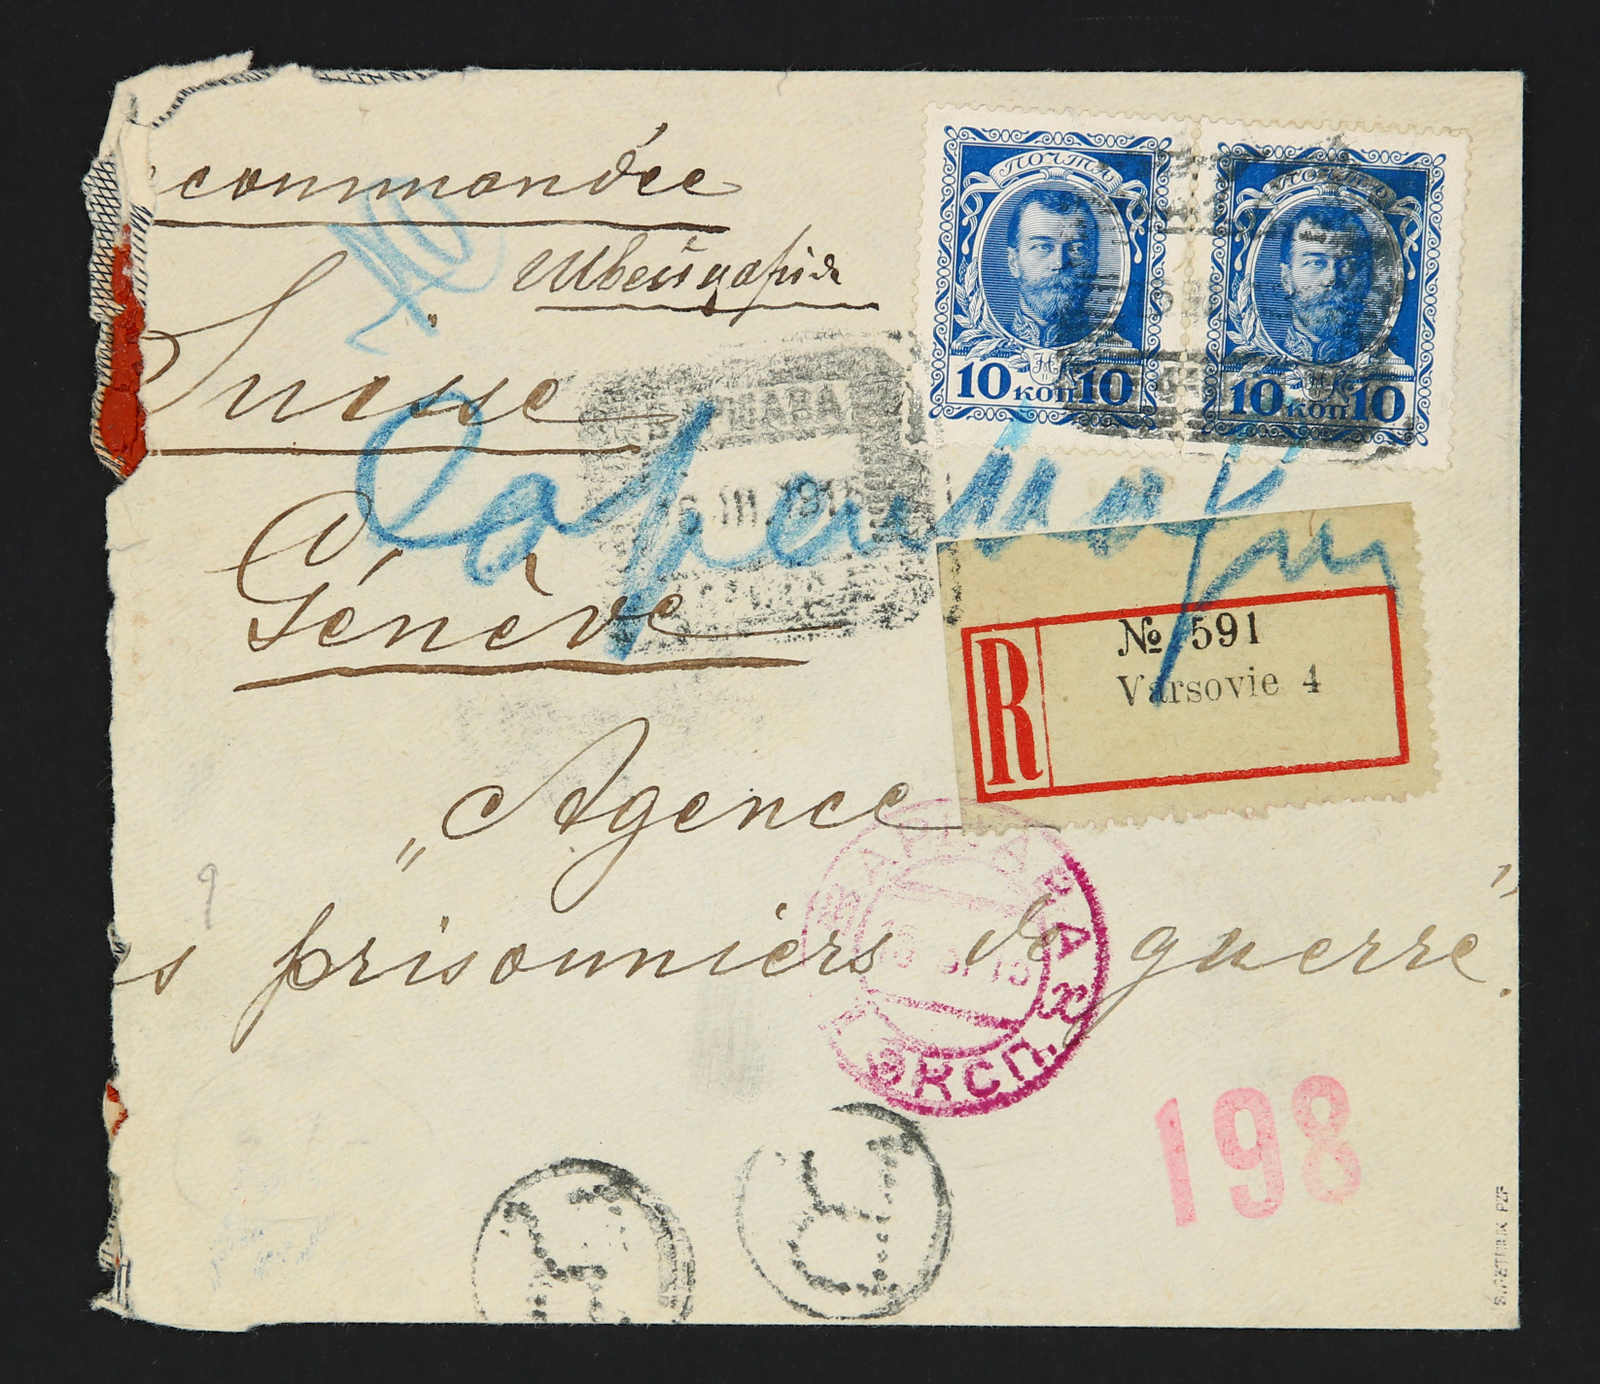 commandée
Швейцарія
Suisse
Genève
„Agence
es prisonniers de guerre”.
ПОЧТА
10 КОП 10
ПОЧТА
10 КОП 10
ВАРШАВА
16 III 191
R
№ 591
Varsovie 4
ВАРШАВА
ЭКСП.
198
R
R